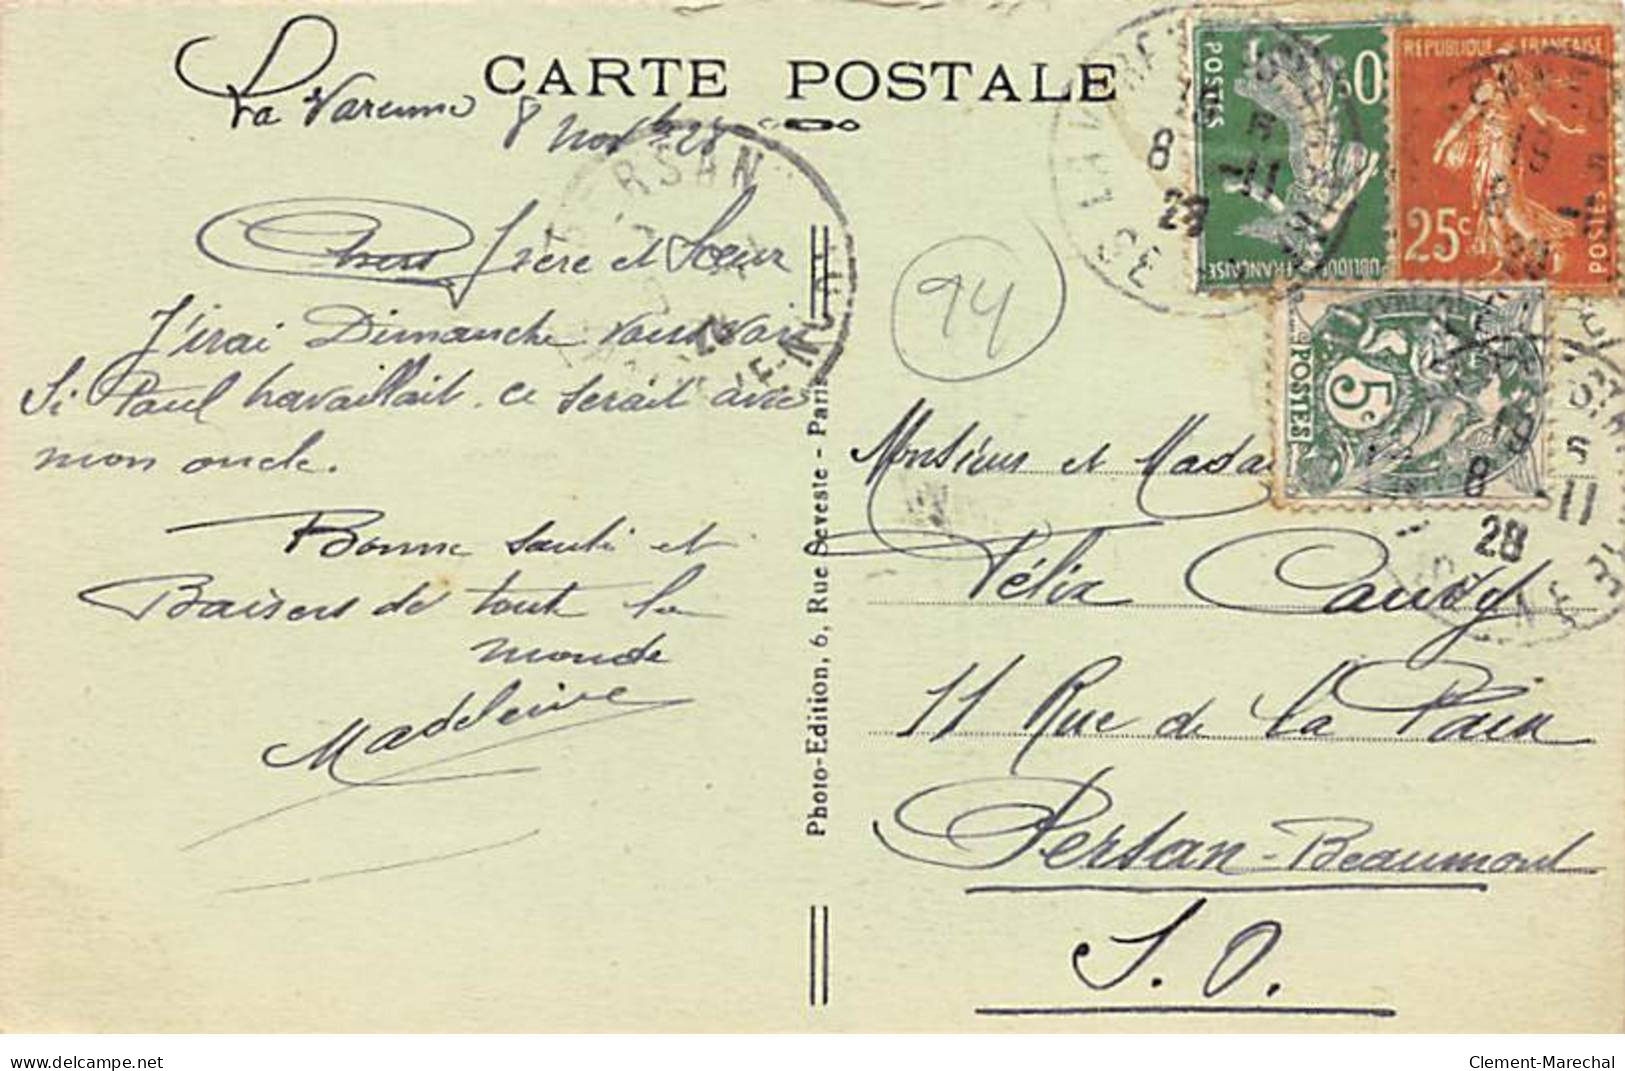 CARTE POSTALE
La Varenne
8 Novbre 28
Chers frère et Sœur
J'irai Dimanche vous voir
Si Paul travaillait, ce serait avec
mon oncle.
Bonne santé et
Baisers de tout le
monde
Madeleine
Photo-Edition, 6, Rue Seveste - Paris
94
Monsieur et Madame
Félix Caudy
11 Rue de la Paix
Persan-Beaumont
S. O.
POSTES
RÉPUBLIQUE FRANÇAISE
25c
POSTES
POSTES
5c
PERSAN
8 -11
28
8 -11
28
delcampe.net
Clement-Marechal